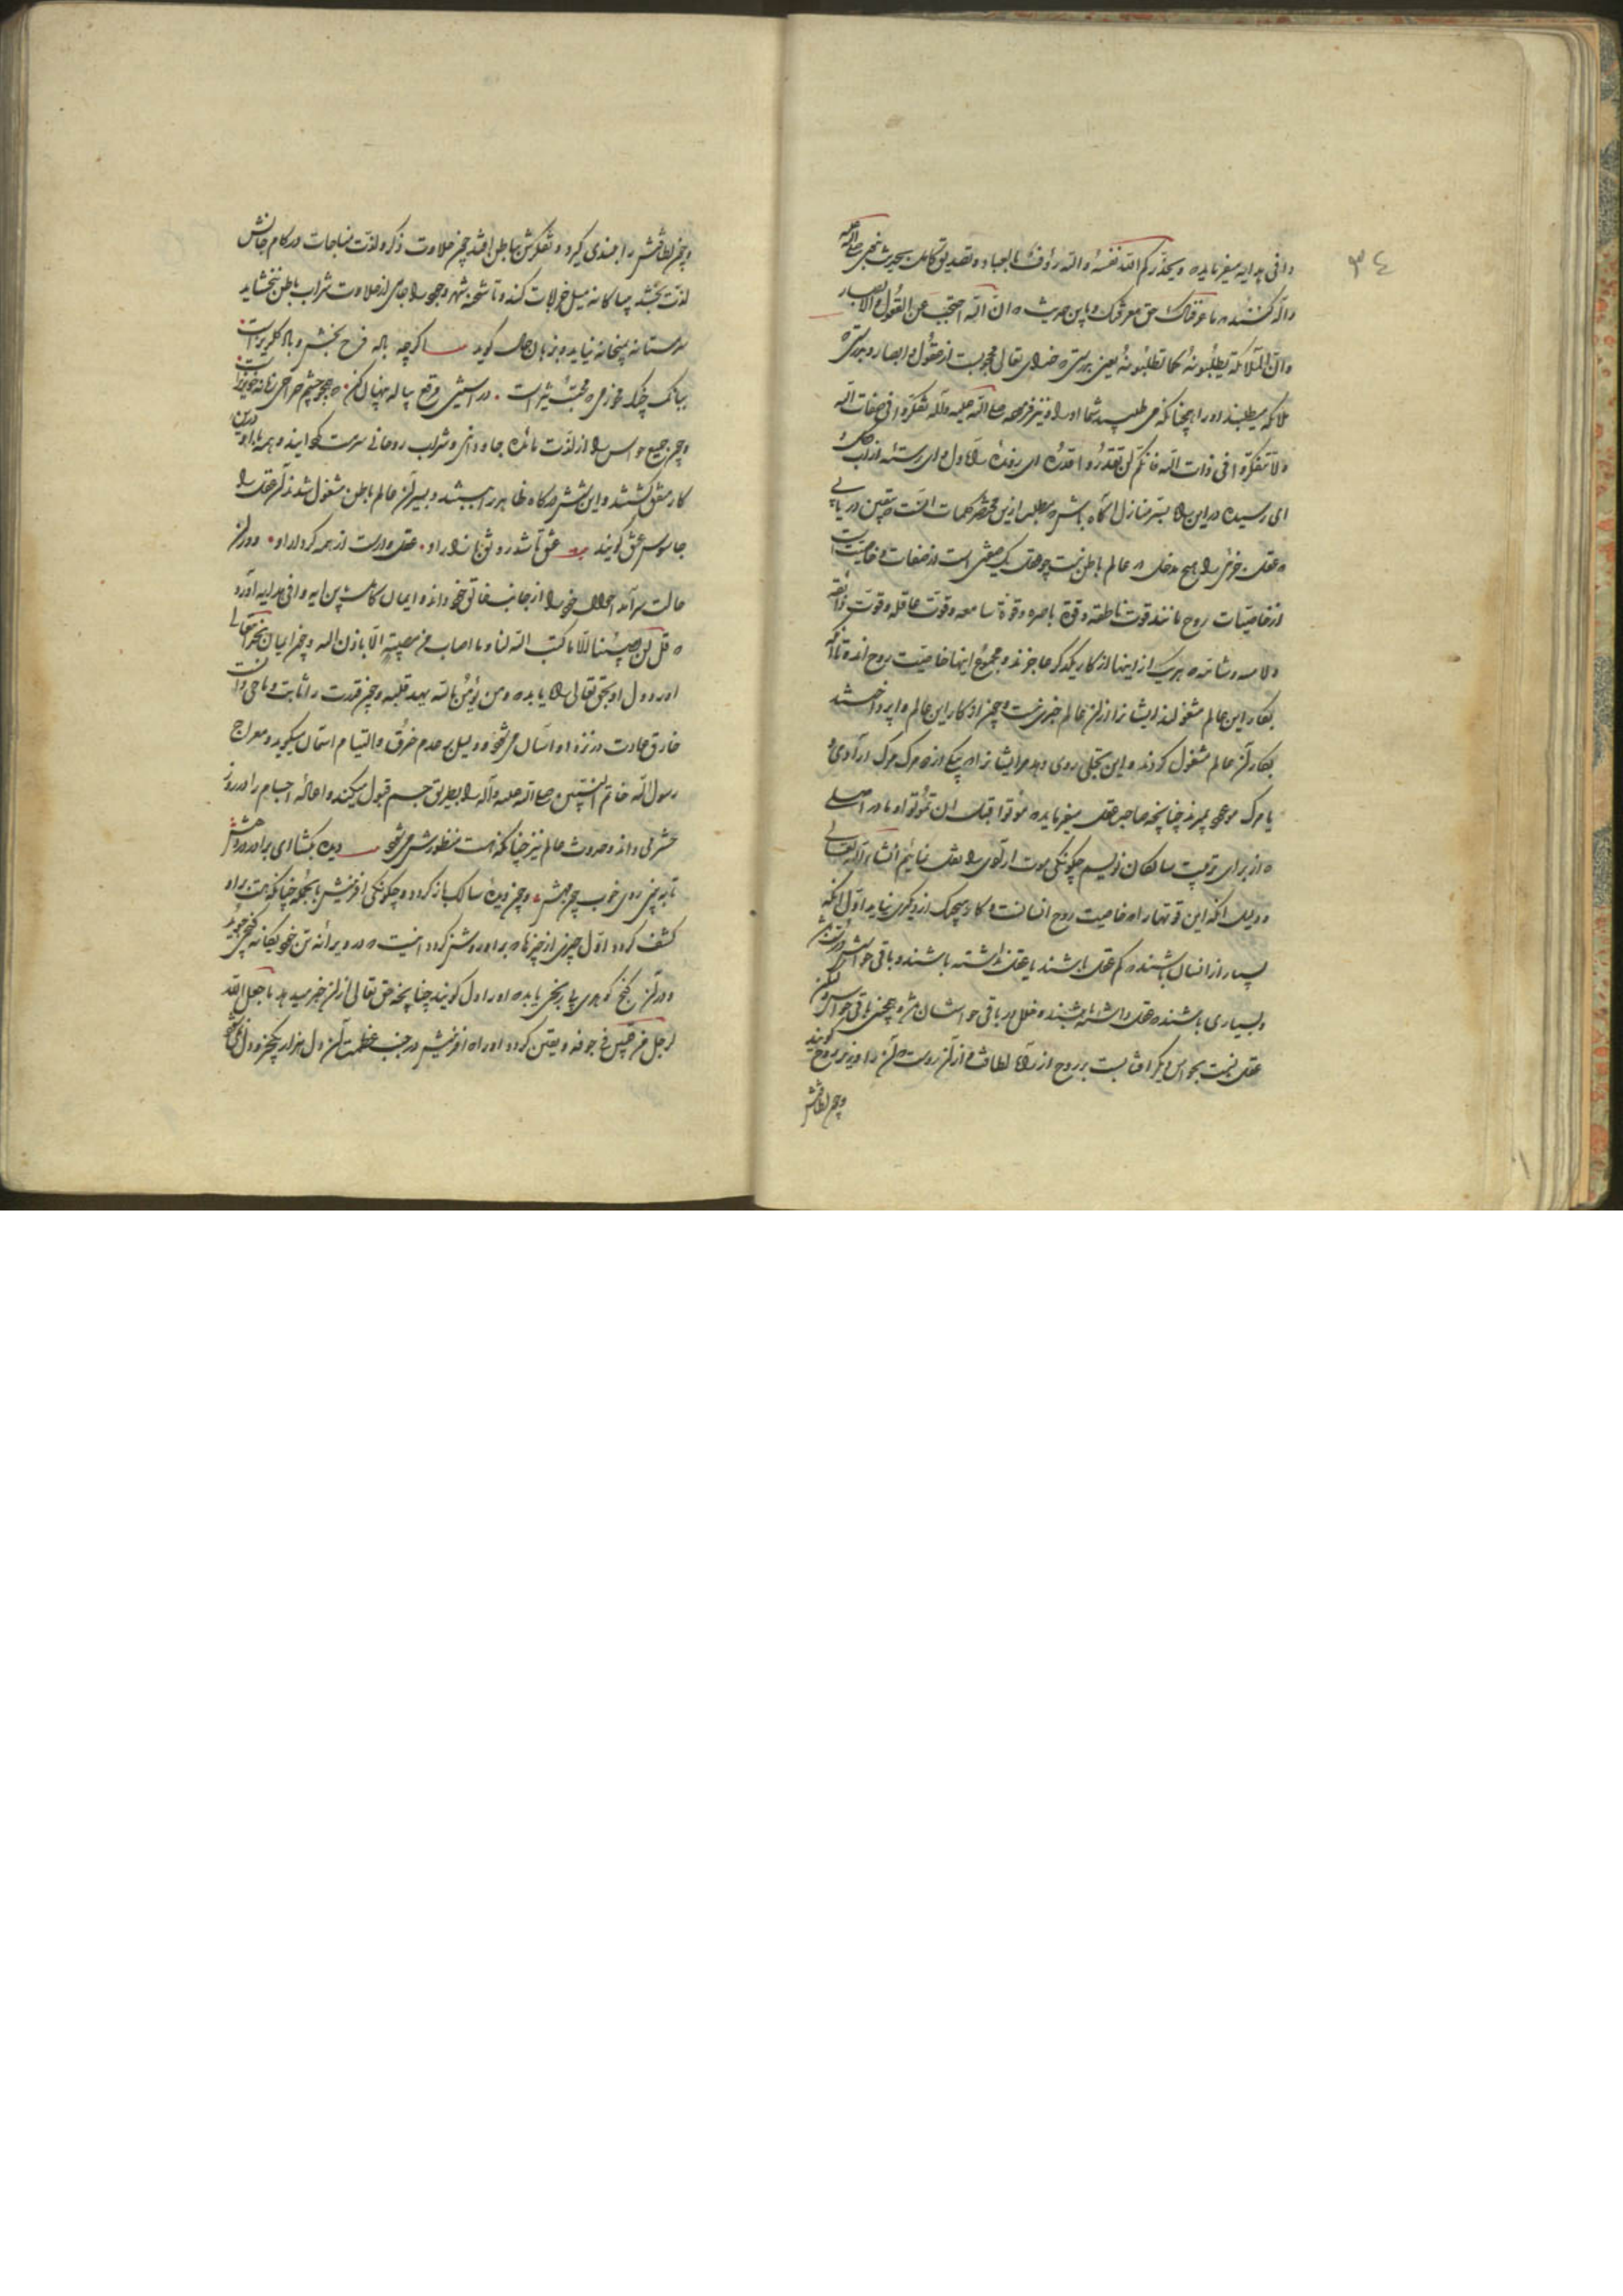 ٣٤
وافی هدایه میفرماید ویحذرکم الله نفسه والله رؤف بالعباد و تصدیق کلمات بحدیث نبی صلی الله علیه
واله کنند ما عرفناک حق معرفتک و باین حدیث ان الله احتجب عن العقول والابصار
وان الملائکة یطلبونه کما تطلبونه یعنی بدرستی خدای تعالی محجوبست از عقول و ابصار و بدرستی
ملائکه میطلبند او را همچنانکه می طلبید شما او را و نیز فرموده صلی الله علیه واله تفکروا فی صفات الله
ولا تتفکروا فی ذات الله فانکم لن تقدروا قدره ای رونده راه اول و ای رسته از
ای رسیده در این راه بمنازل آگاه باش مطلب ازین مختصر کلمات آنست یقین دریابی
عقل جزئی را هیچ مدخل در عالم باطن نیست چو عقل یک صفتی است از صفات و خاصیت است
از خاصیات روح مانند قوت ناطقه و قوة باصره و قوة سامعه و قوت عاقله و قوت ذائقه
ولامسه و شامه هریک از اینها از کار یکدگر عاجزند و مجموع اینها خاصیت روح اند تا آنکه
بکار این عالم مشغولند ایشانرا از آن عالم خبری نیست و چون از کار این عالم واپرداختند
بکار آن عالم مشغول کردند و این تجلی روی دهد مر ایشانرا در یکی از مرک مرک ارادی و
یا مرک موعود میرند چنانچه صاحب عقل میفرماید موتوا قبل ان تموتوا و ما در اصلی
از برای تربیت سالکان نویسم چکونکی موت ارادی را نقل نمائیم انشاء الله تعالی
و دلیل آنکه این قوتها را خاصیت روح انسانست و کار هیچیک از دیکری نیاید اول آنکه
بسیار از انسان باشند کم عقل باشند یا عقل نداشته باشند و باقی حواسش درست باشد
و بسیاری باشند عقل داشته باشند و خلل در باقی حواسشان و همچنین باقی حواس
عقل نسبت بحواس دیکر اقربست بر روح از راه لطافت و از آن روست آن را وزیر روح کویند
وچون لطافتش
وچون لطافتش را بلندی کیرد و تفکرش بباطن افتد چون حلاوت ذکر و لذت مناجات در کام جانش
لذت بخشد بیباکانه میل خرابات کند و تا شحنه شهر وجود را جامی از حلاوت شراب باطن نچشاند
سرمستانه بمیخانه نیاید و بزبان حال کوید اکرچه باده فرح بخش و باد کلریز است
ببانک چنک مخور می محتسب تیز است در آستین مرقع پیاله پنهان کن همچو چشم صراحی زمانه خونریز است
وچون جمیع حواس را از لذت مائده جاودانی و شراب روحانی سرمست کردانید و همه را بدو در این
کار متفق کشتند و این شش درکاه ظاهر را ببستند و بسیر آن عالم باطن مشغول شدند آن عقل را
جاسوس عشق کویند عشق تا شد رونق بازار او عقل وارست از همه کردار او و در آن
حالت سرآمد احوال خود را از جانب خالق خود داند و ایمان کامل باین آیه وافی هدایه آورد
قل لن یصیبنا الا ما کتب الله لنا و ما اصاب من مصیبة الا باذن الله وچون ایمان بخدای تعالی
آورد دل او بحق تعالی راه یابد ومن یؤمن بالله یهد قلبه وچون قدرت را ثابت و ماحی دانست
خارق عادت در نزد او آسان می شود و دلیل بر عدم خرق والتیام آسمان میکوید و معراج
رسول الله خاتم النبیین صلی الله علیه واله را بطریق جسم قبول میکند و احالهٔ اجسام را در روز
حشر می داند و حدوث عالم نیز چنانکه هست منظورش می شود دیده بکشا ای برادر در وجودش
تا ببینی روی خوب وچون دیده سالک باز کردد و چکونکی آفرینش یا بنحو چنانکه هست بر او
کشف کردد اول چیزی از چیزها بر او روشن کردد اینست در ویرانه تن خود یکدانه کنجی جوید
و در آن کنج کوهری پا بر نخی یابد او را دل کویند چنانچه حق تعالی از آن خبر میدهد ما جعل الله
لرجل من قلبین فی جوفه و یقین کردد او را آفرینش در جنب عظمت آن دل هزار یکجزو دل نمی شود